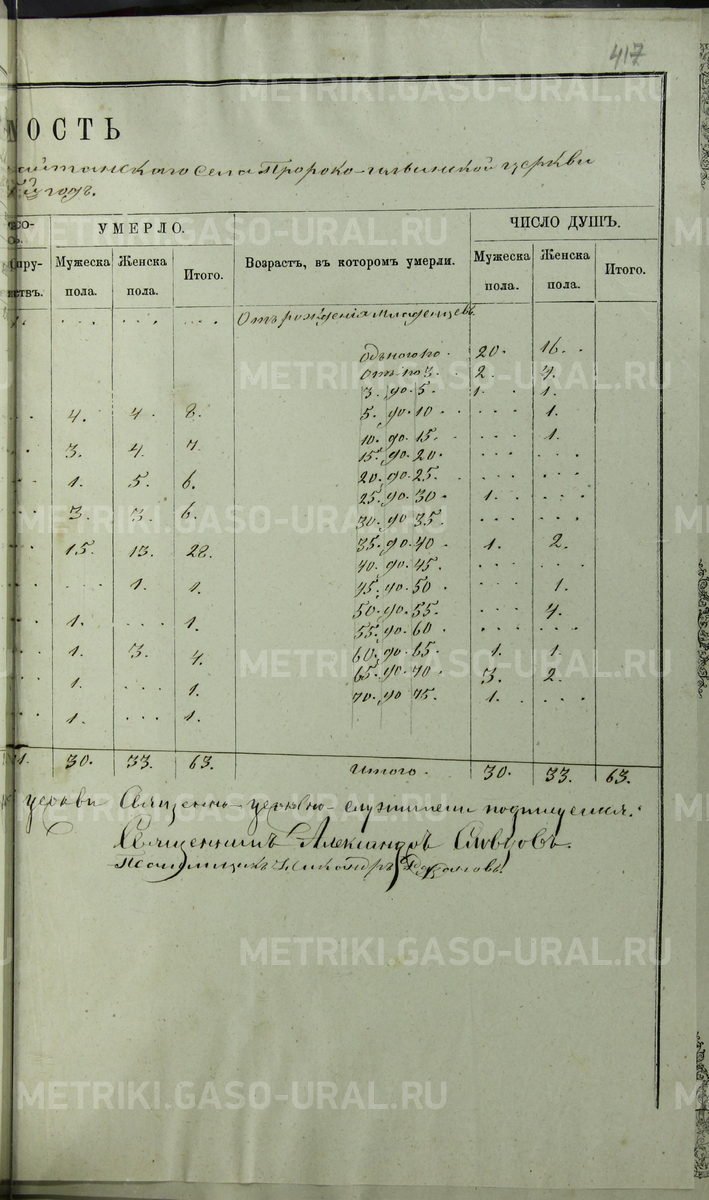 417
МОСТЬ
айтанскаго села Пророко-Ильинской церкви
годъ.
УМЕРЛО. ЧИСЛО ДУШЪ.
Мужеска пола. Женска пола. Итого. Возрастъ, въ которомъ умерли. Мужеска пола. Женска пола. Итого.
Отъ рожденія младенцевъ
одного го. 20. 16.
От по 3. 2. 4.
3. до 5. 1. 1.
4. 4. 8. 5. до 10. 1.
10. до 15. 1.
3. 4. 7. 15. до 20.
1. 5. 6. 20. до 25.
25. до 30. 1.
3. 3. 6. 30. до 35.
15. 13. 28. 35. до 40. 1. 2.
40. до 45.
1. 1. 45. до 50 1.
50. до 55. 4.
1. 1. 55. до 60.
1. 3. 4. 60. до 65. 1. 1.
1. 1. 65. до 70 3. 2.
1. 1. 70. до 75. 1.
1. 30. 33. 63. Итого. 30. 33. 63.
церкви Священно-церковно-служители подпишемся.
Священникъ Александръ Словцовъ.
Псаломщикъ Никандръ
METRIKI.GASO-URAL.RU